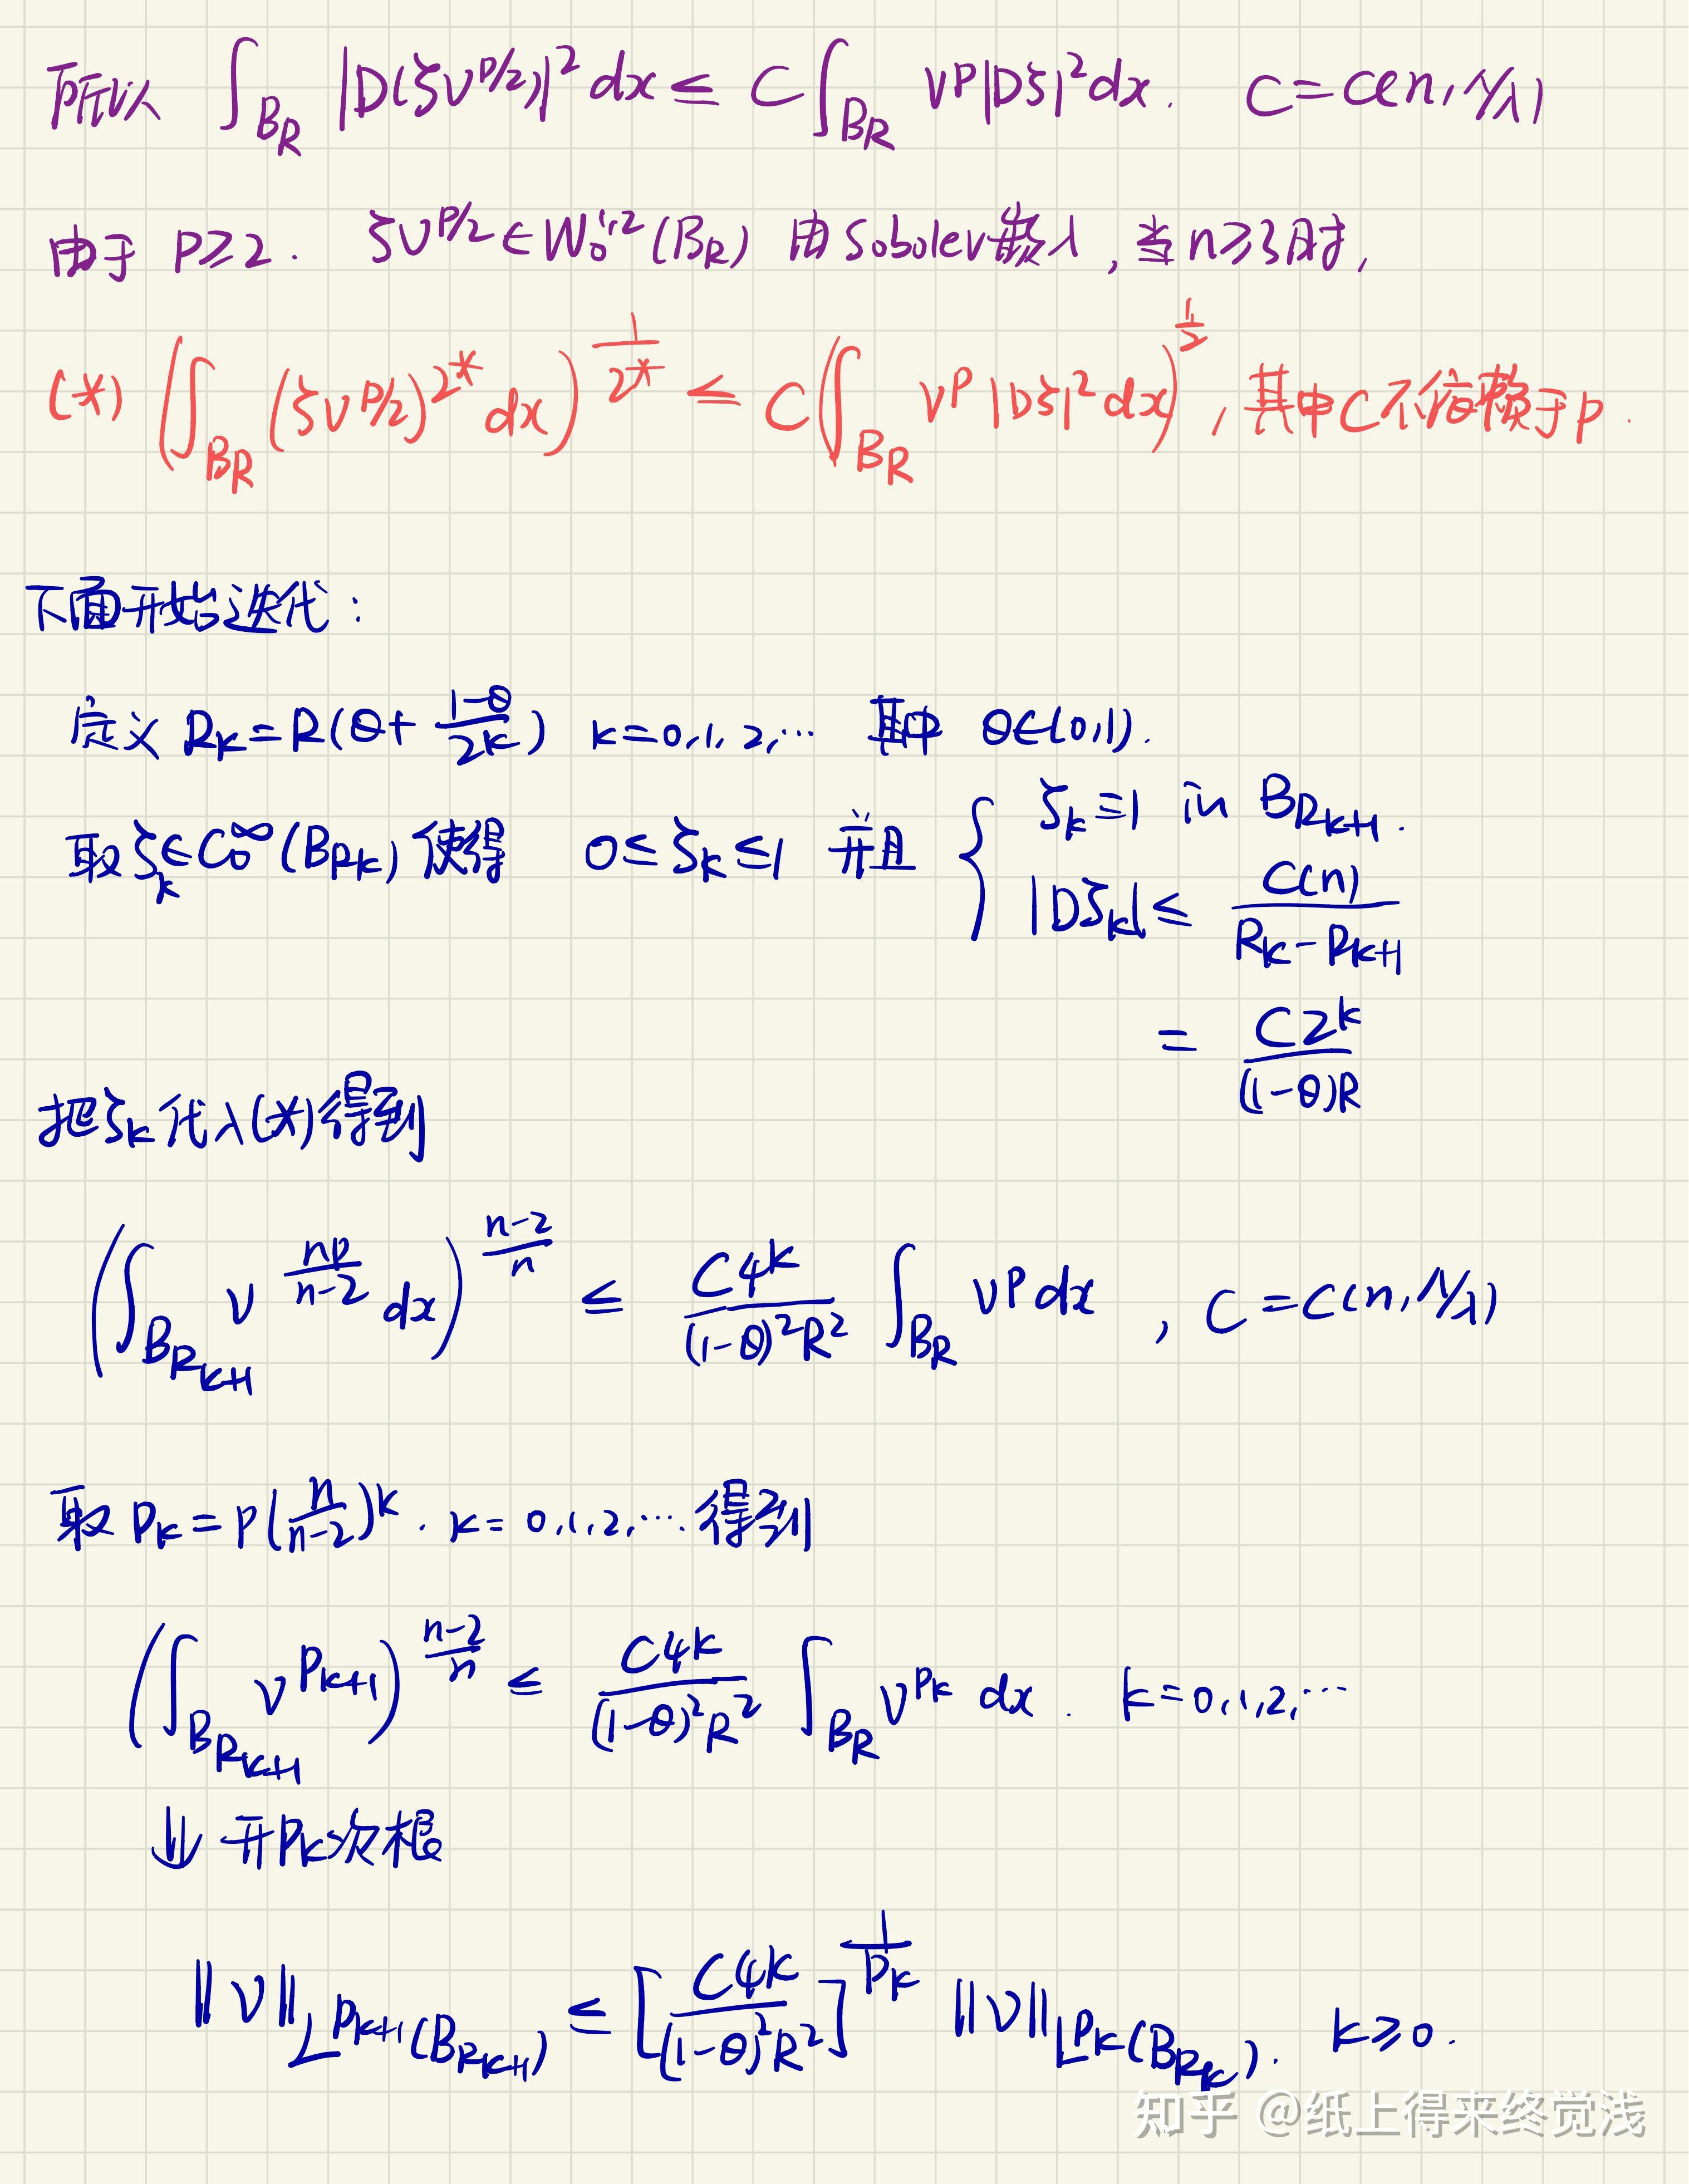 所以 ∫_{B_R} |D(ζv^{p/2})|² dx ≤ C∫_{B_R} v^p|Dζ|²dx. C=C(n,Λ/λ)
由于 p≥2. ζv^{p/2}∈W_0^{1,2}(B_R) 由Sobolev嵌入,当n≥3时,
(*) (∫_{B_R} (ζv^{p/2})^{2*} dx)^{1/2*} ≤ C(∫_{B_R} v^p |Dζ|² dx)^{1/2}, 其中C不依赖于p.
下面开始迭代:
定义 R_k=R(θ+\frac{1-θ}{2^k}) k=0,1,2,… 其中 θ∈(0,1).
取ζ_k∈C_0^∞(B_{R_k})使得 0≤ζ_k≤1 并且 { ζ_k≡1 in B_{R_{k+1}}.
|Dζ_k|≤ \frac{C(n)}{R_k-R_{k+1}}
= \frac{C2^k}{(1-θ)R}
把ζ_k代入(*)得到
(∫_{B_{R_{k+1}}} v^{\frac{np}{n-2}} dx)^{\frac{n-2}{n}} ≤ \frac{C4^k}{(1-θ)²R²} ∫_{B_R} v^p dx , C=C(n,Λ/λ)
取 p_k=p(\frac{n}{n-2})^k. k=0,1,2,…得到
(∫_{B_{R_{k+1}}} v^{p_{k+1}})^{\frac{n-2}{n}} ≤ \frac{C4^k}{(1-θ)²R²} ∫_{B_R} v^{p_k} dx. k=0,1,2,…
⇓ 开p_k次根
||v||_{L^{p_{k+1}}(B_{R_{k+1}})} ≤ [\frac{C4^k}{(1-θ)²R²}]^{\frac{1}{p_k}} ||v||_{L^{p_k}(B_{R_k})}. k≥0.
知乎 @纸上得来终觉浅